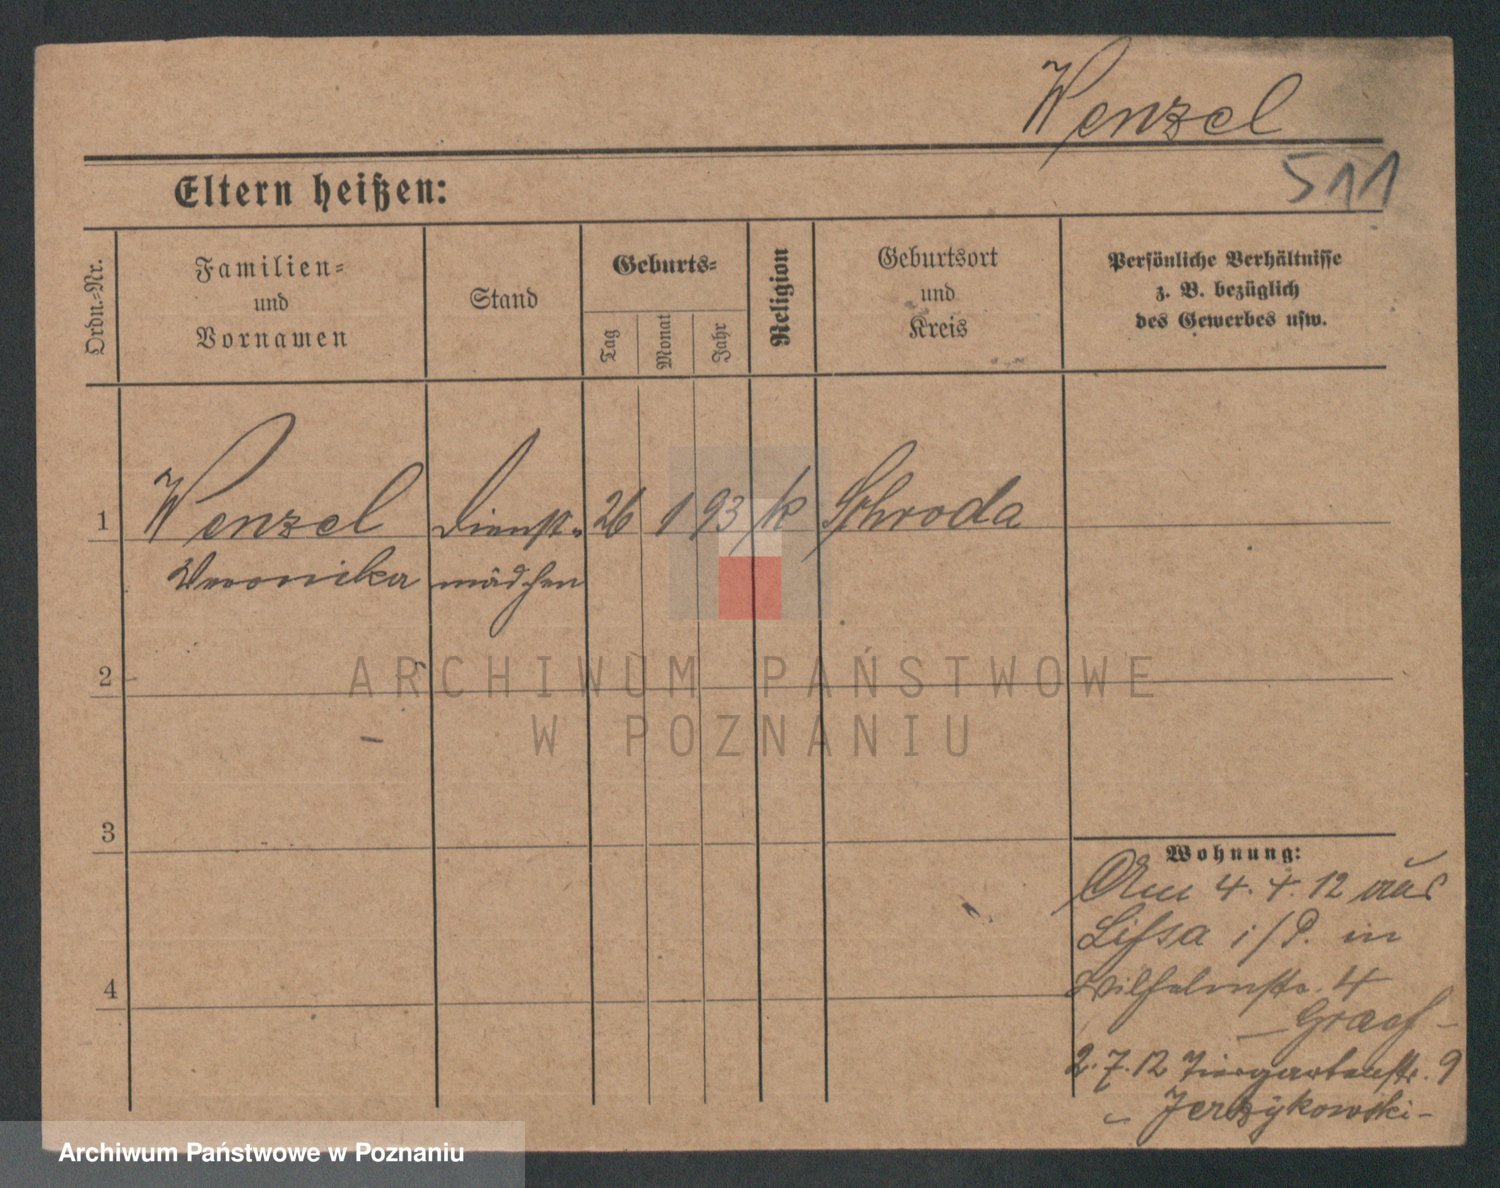 Wenzel
511
Eltern heißen:
Ordn.-Nr.
Familien-
und
Vornamen
Stand
Geburts-
Tag
Monat
Jahr
Religion
Geburtsort
und
Kreis
Persönliche Verhältnisse
z. B. bezüglich
des Gewerbes usw.
1 Wenzel Dienst- 26 1 93 k Schroda
Veronika mädchen
2
3
4
Wohnung:
Am 4. 4. 12 aus
Lissa i/P. in
Wilhelmstr. 4
- Graef -
2.7.12 Tiergartenstr. 9
- Jerzykowski -
ARCHIWUM PAŃSTWOWE
W POZNANIU
Archiwum Państwowe w Poznaniu